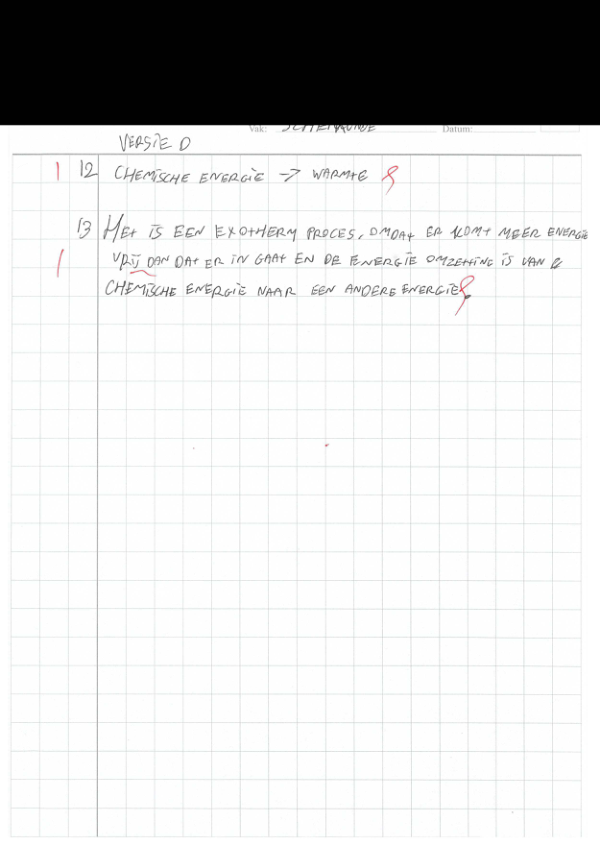 Vak: SCHEIKUNDE Datum:
VERSIE D
1 12 CHEMISCHE ENERGIE → WARMTE
13 HET IS EEN EXOTHERM PROCES, OMDAT ER KOMT MEER ENERGIE
1 VRIJ DAN DAT ER IN GAAT EN DE ENERGIE OMZETTING IS VAN
CHEMISCHE ENERGIE NAAR EEN ANDERE ENERGIE.